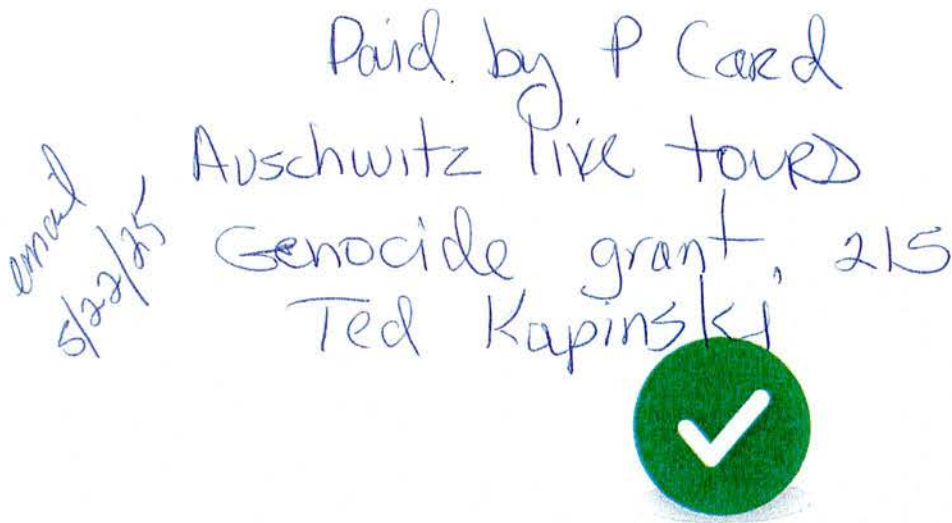 Paid by P Card
Auschwitz live tours
Genocide grant, 215
Ted Kapinski
email
5/22/25